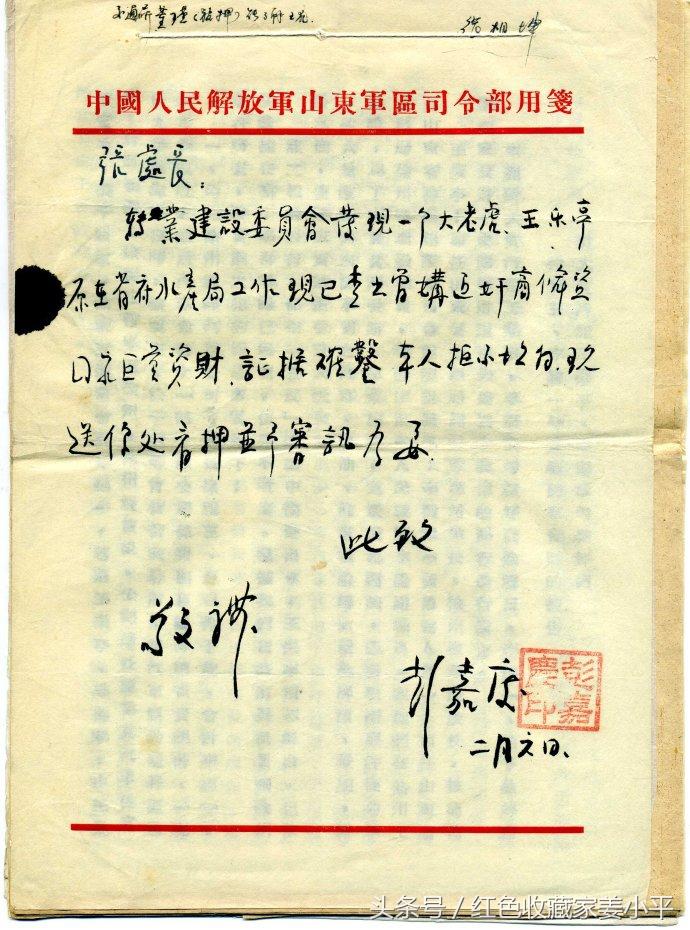 徐相坤
中國人民解放軍山東軍區司令部用箋
張處長：
轉業建設委員會發現一个大老虎、王乐亭
原在省府水產局工作現已查出曾媾迊奸商偷盗
国家巨量資財、証据確鑿本人拒不坦白.现
送你处看押並予審訊为要.
此致
敬禮
彭嘉慶
彭嘉慶印
二月六日、
头条号／红色收藏家姜小平